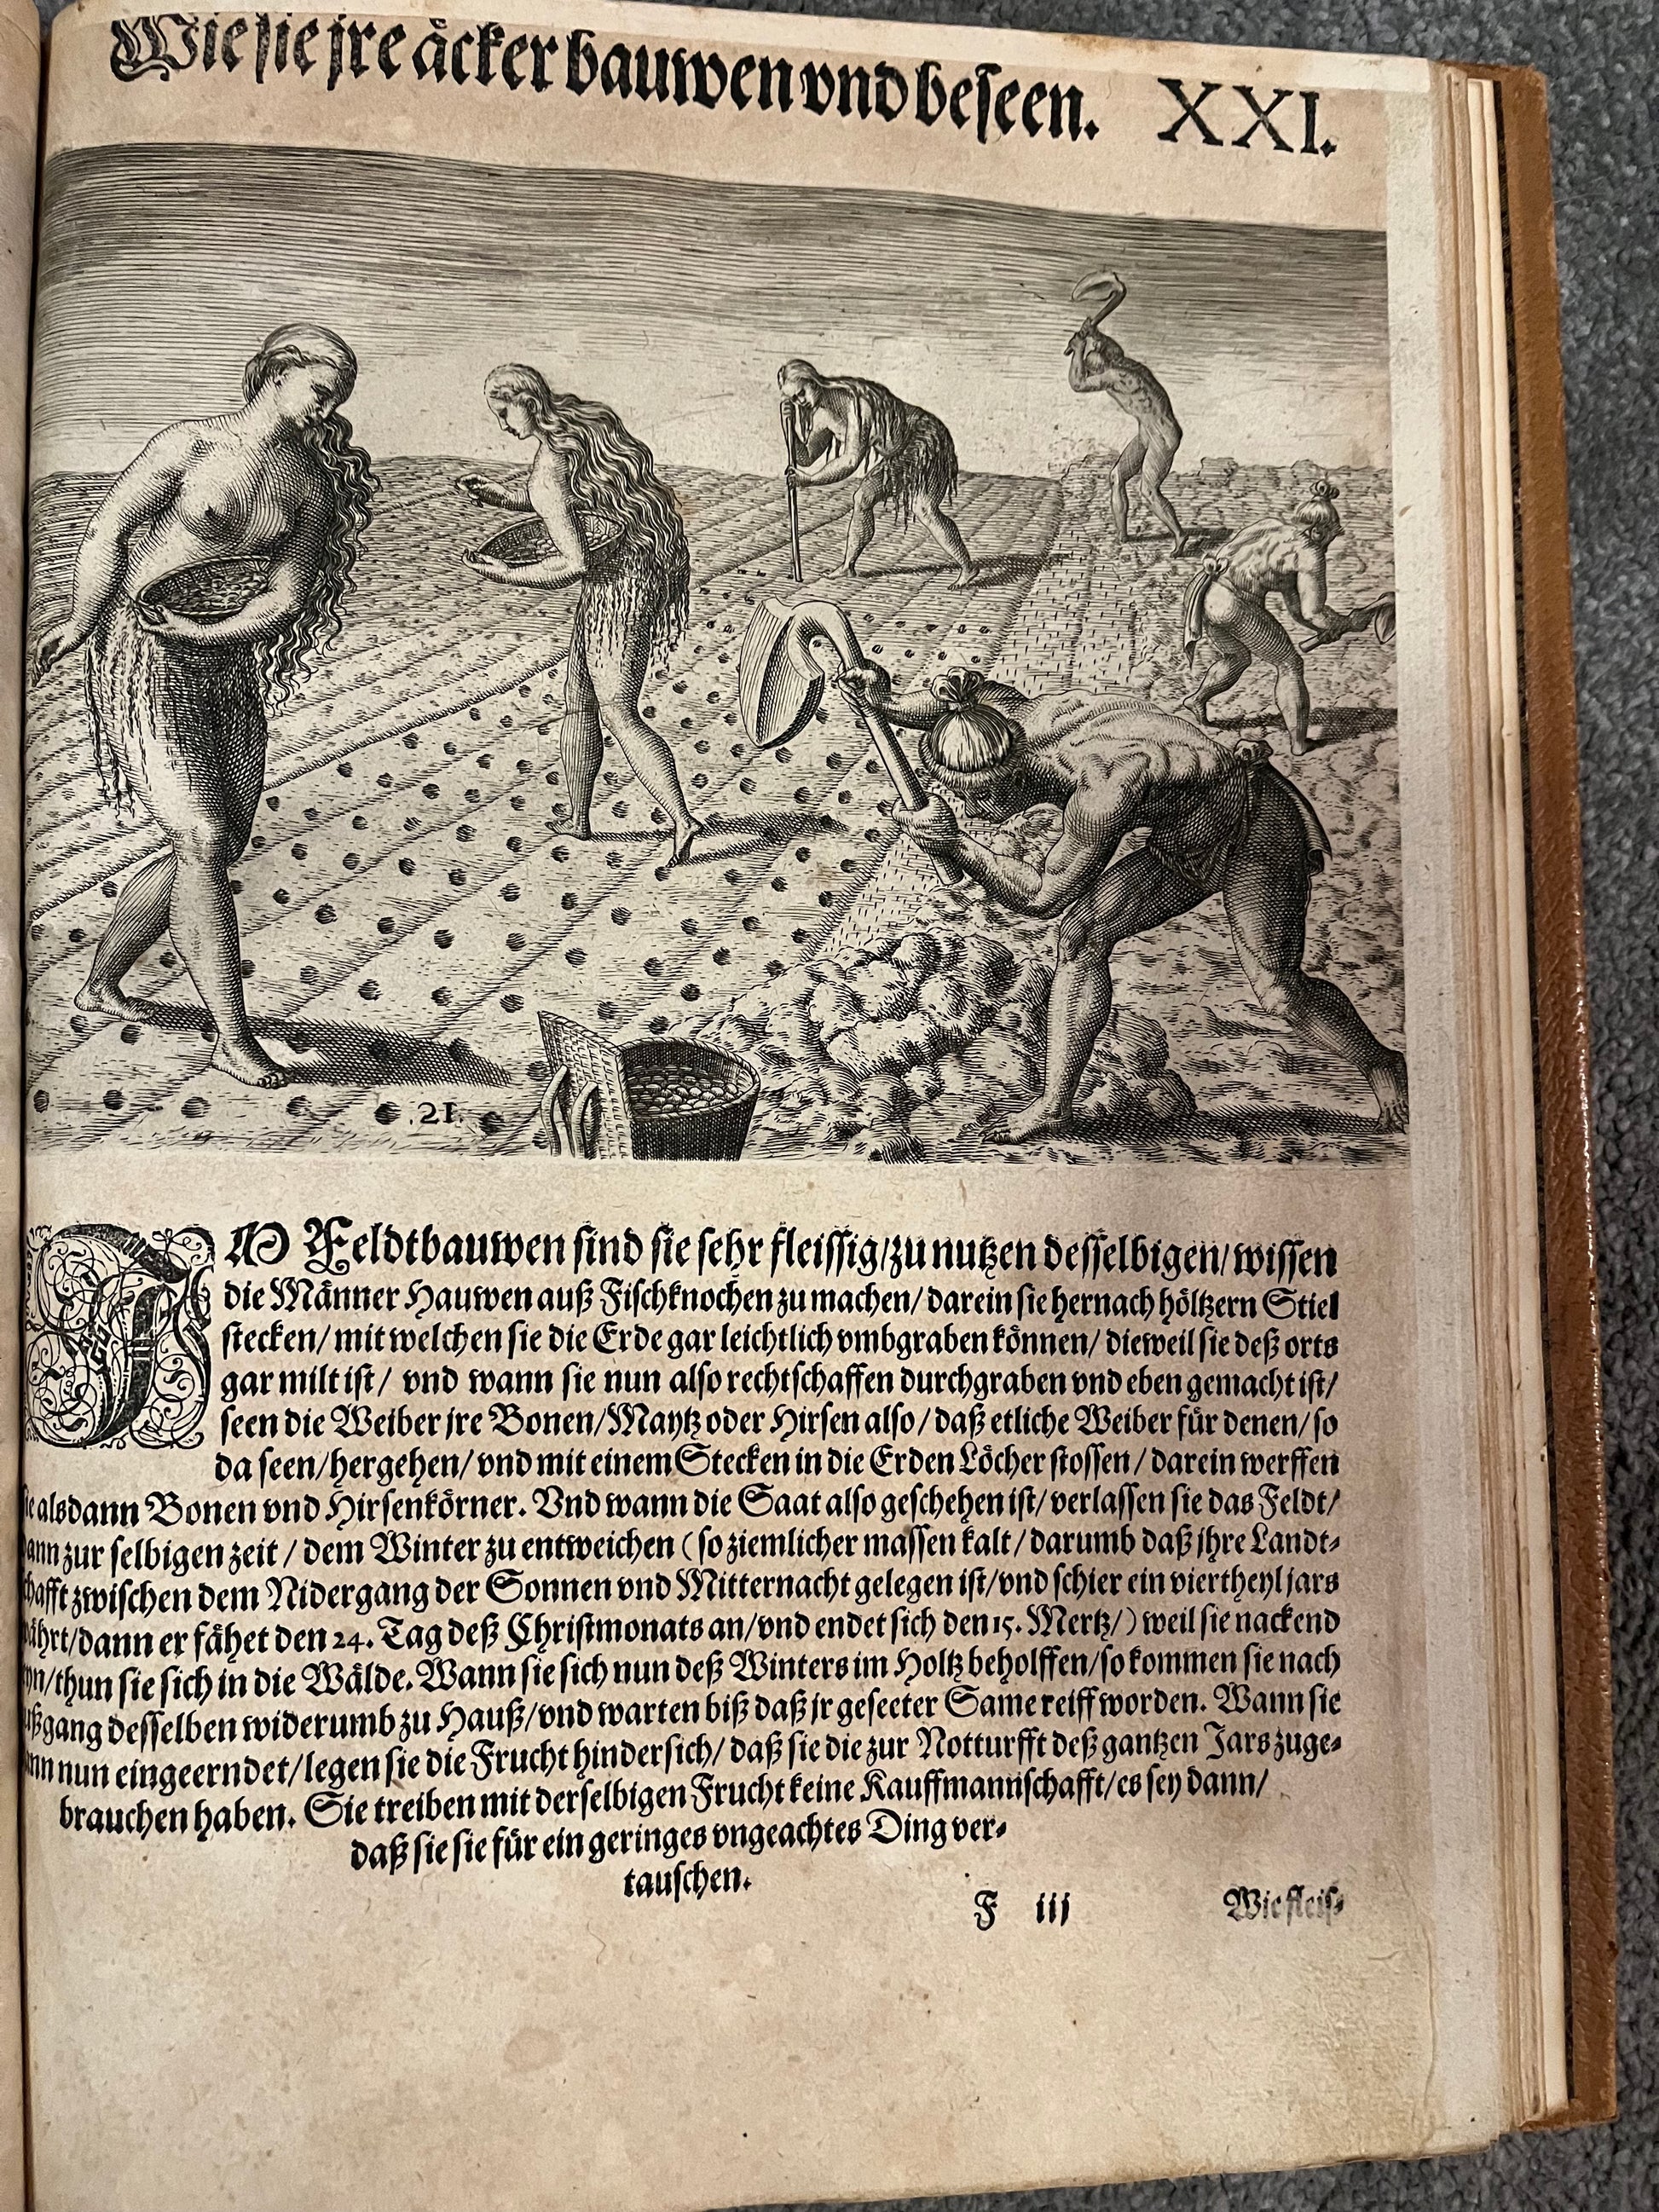 Wie sie jre äcker bauwen vnd beseen. XXI.
.21.
IM Feldtbauwen sind sie sehr fleissig/zu nutzen desselbigen/wissen
die Männer Hauwen auß Fischknochen zu machen/darein sie hernach höltzern Stiel
stecken/mit welchen sie die Erde gar leichtlich vmbgraben können/dieweil sie deß orts
gar milt ist/ vnd wann sie nun also rechtschaffen durchgraben vnd eben gemacht ist/
seen die Weiber jre Bonen/Maytz oder Hirsen also/daß etliche Weiber für denen/so
da seen/hergehen/vnd mit einem Stecken in die Erden Löcher stossen/darein werffen
alsdann Bonen vnd Hirsenkörner. Vnd wann die Saat also geschehen ist/verlassen sie das Feldt/
dann zur selbigen zeit/dem Winter zu entweichen (so ziemlicher massen kalt/darumb daß jhre Landt⸗
schafft zwischen dem Nidergang der Sonnen vnd Mitternacht gelegen ist/vnd schier ein viertheyl jars
währt/dann er fähet den 24. Tag deß Christmonats an/vnd endet sich den 15. Mertz/) weil sie nackend
/thun sie sich in die Wälde. Wann sie sich nun deß Winters im Holtz beholffen/so kommen sie nach
außgang desselben widerumb zu Hauß/vnd warten biß daß jr geseeter Same reiff worden. Wann sie
nun eingeerndet/legen sie die Frucht hindersich/daß sie die zur Notturfft deß gantzen Jars zuge⸗
brauchen haben. Sie treiben mit derselbigen Frucht keine Kauffmannschafft/es sey dann/
daß sie sie für ein geringes vngeachtes Ding ver⸗
tauschen.
F iij Wie fleis⸗